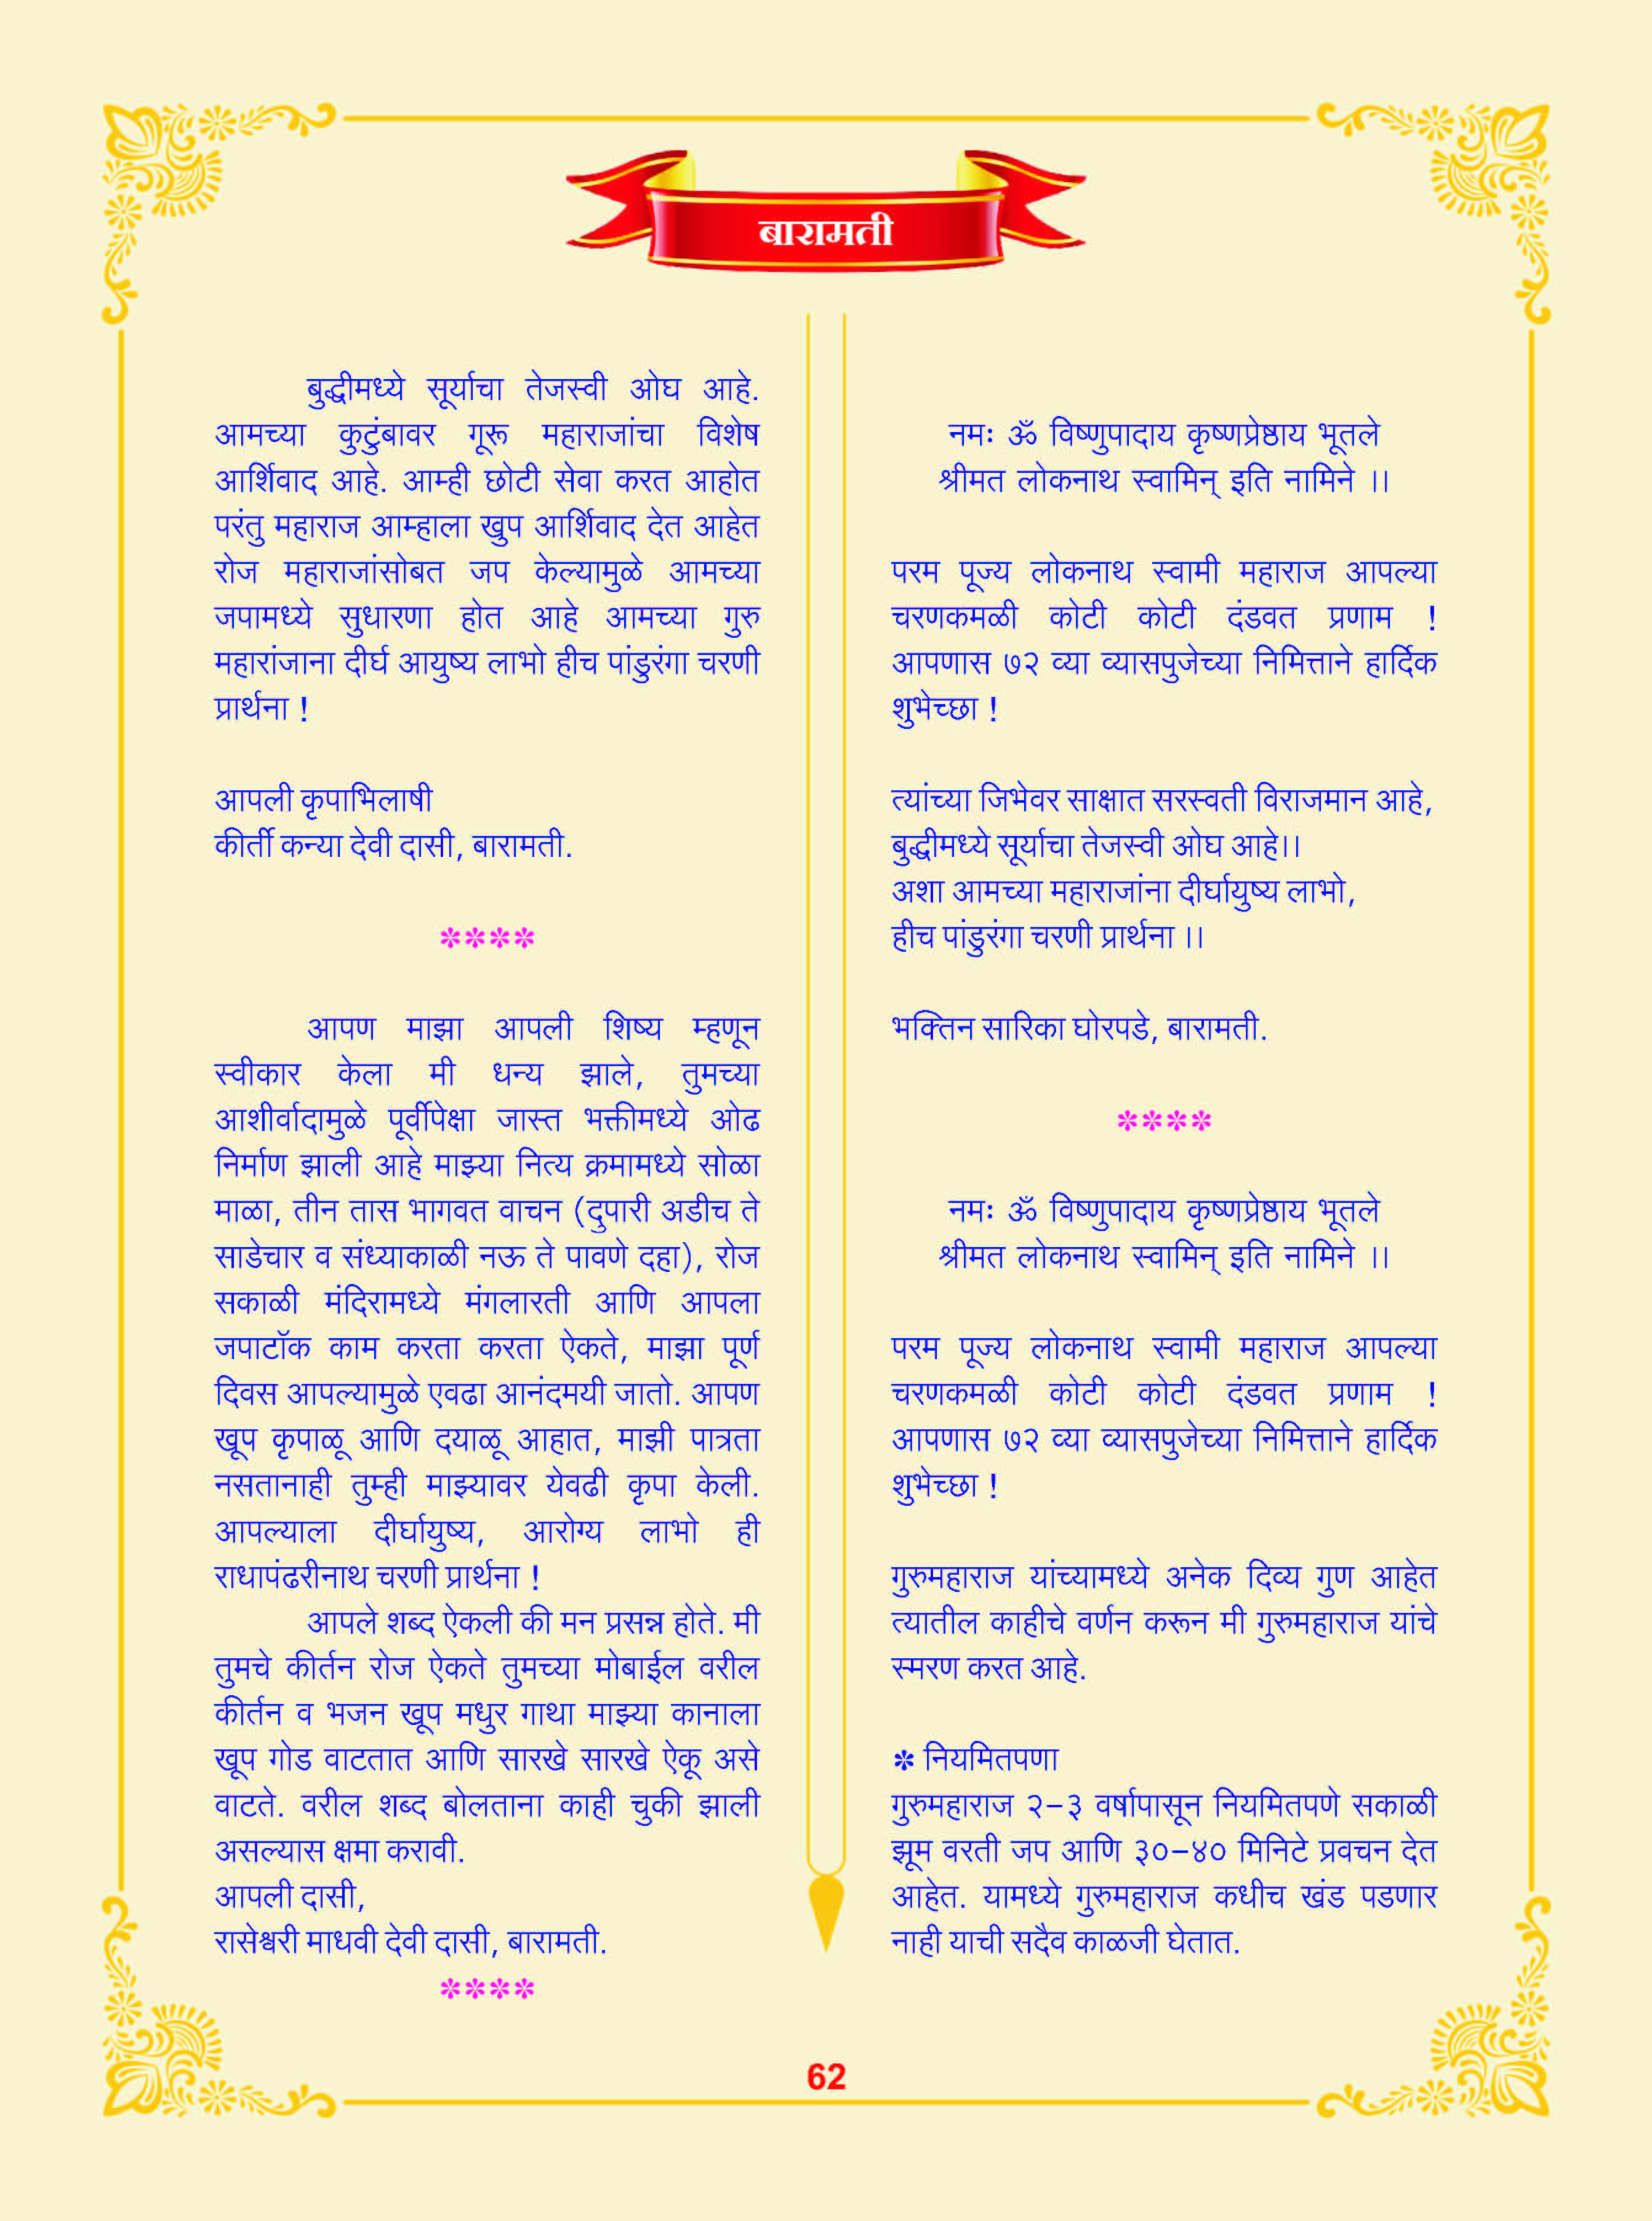 बारामती
बुद्धीमध्ये सूर्याचा तेजस्वी ओघ आहे.
आमच्या कुटुंबावर गूरू महाराजांचा विशेष
आर्शिवाद आहे. आम्ही छोटी सेवा करत आहोत
परंतु महाराज आम्हाला खुप आर्शिवाद देत आहेत
रोज महाराजांसोबत जप केल्यामुळे आमच्या
जपामध्ये सुधारणा होत आहे आमच्या गुरु
महारांजाना दीर्घ आयुष्य लाभो हीच पांडुरंगा चरणी
प्रार्थना !
आपली कृपाभिलाषी
कीर्ती कन्या देवी दासी, बारामती.
✽✽✽✽
आपण माझा आपली शिष्य म्हणून
स्वीकार केला मी धन्य झाले, तुमच्या
आशीर्वादामुळे पूर्वीपेक्षा जास्त भक्तीमध्ये ओढ
निर्माण झाली आहे माझ्या नित्य क्रमामध्ये सोळा
माळा, तीन तास भागवत वाचन (दुपारी अडीच ते
साडेचार व संध्याकाळी नऊ ते पावणे दहा), रोज
सकाळी मंदिरामध्ये मंगलारती आणि आपला
जपाटॉक काम करता करता ऐकते, माझा पूर्ण
दिवस आपल्यामुळे एवढा आनंदमयी जातो. आपण
खूप कृपाळू आणि दयाळू आहात, माझी पात्रता
नसतानाही तुम्ही माझ्यावर येवढी कृपा केली.
आपल्याला दीर्घायुष्य, आरोग्य लाभो ही
राधापंढरीनाथ चरणी प्रार्थना !
आपले शब्द ऐकली की मन प्रसन्न होते. मी
तुमचे कीर्तन रोज ऐकते तुमच्या मोबाईल वरील
कीर्तन व भजन खूप मधुर गाथा माझ्या कानाला
खूप गोड वाटतात आणि सारखे सारखे ऐकू असे
वाटते. वरील शब्द बोलताना काही चुकी झाली
असल्यास क्षमा करावी.
आपली दासी,
रासेश्वरी माधवी देवी दासी, बारामती.
✽✽✽✽
नमः ॐ विष्णुपादाय कृष्णप्रेष्ठाय भूतले
श्रीमत लोकनाथ स्वामिन् इति नामिने ।।
परम पूज्य लोकनाथ स्वामी महाराज आपल्या
चरणकमळी कोटी कोटी दंडवत प्रणाम !
आपणास ७२ व्या व्यासपुजेच्या निमित्ताने हार्दिक
शुभेच्छा !
त्यांच्या जिभेवर साक्षात सरस्वती विराजमान आहे,
बुद्धीमध्ये सूर्याचा तेजस्वी ओघ आहे।।
अशा आमच्या महाराजांना दीर्घायुष्य लाभो,
हीच पांडुरंगा चरणी प्रार्थना ।।
भक्तिन सारिका घोरपडे, बारामती.
✽✽✽✽
नमः ॐ विष्णुपादाय कृष्णप्रेष्ठाय भूतले
श्रीमत लोकनाथ स्वामिन् इति नामिने ।।
परम पूज्य लोकनाथ स्वामी महाराज आपल्या
चरणकमळी कोटी कोटी दंडवत प्रणाम !
आपणास ७२ व्या व्यासपुजेच्या निमित्ताने हार्दिक
शुभेच्छा !
गुरुमहाराज यांच्यामध्ये अनेक दिव्य गुण आहेत
त्यातील काहीचे वर्णन करून मी गुरुमहाराज यांचे
स्मरण करत आहे.
✽ नियमितपणा
गुरुमहाराज २-३ वर्षापासून नियमितपणे सकाळी
झूम वरती जप आणि ३०-४० मिनिटे प्रवचन देत
आहेत. यामध्ये गुरुमहाराज कधीच खंड पडणार
नाही याची सदैव काळजी घेतात.
62